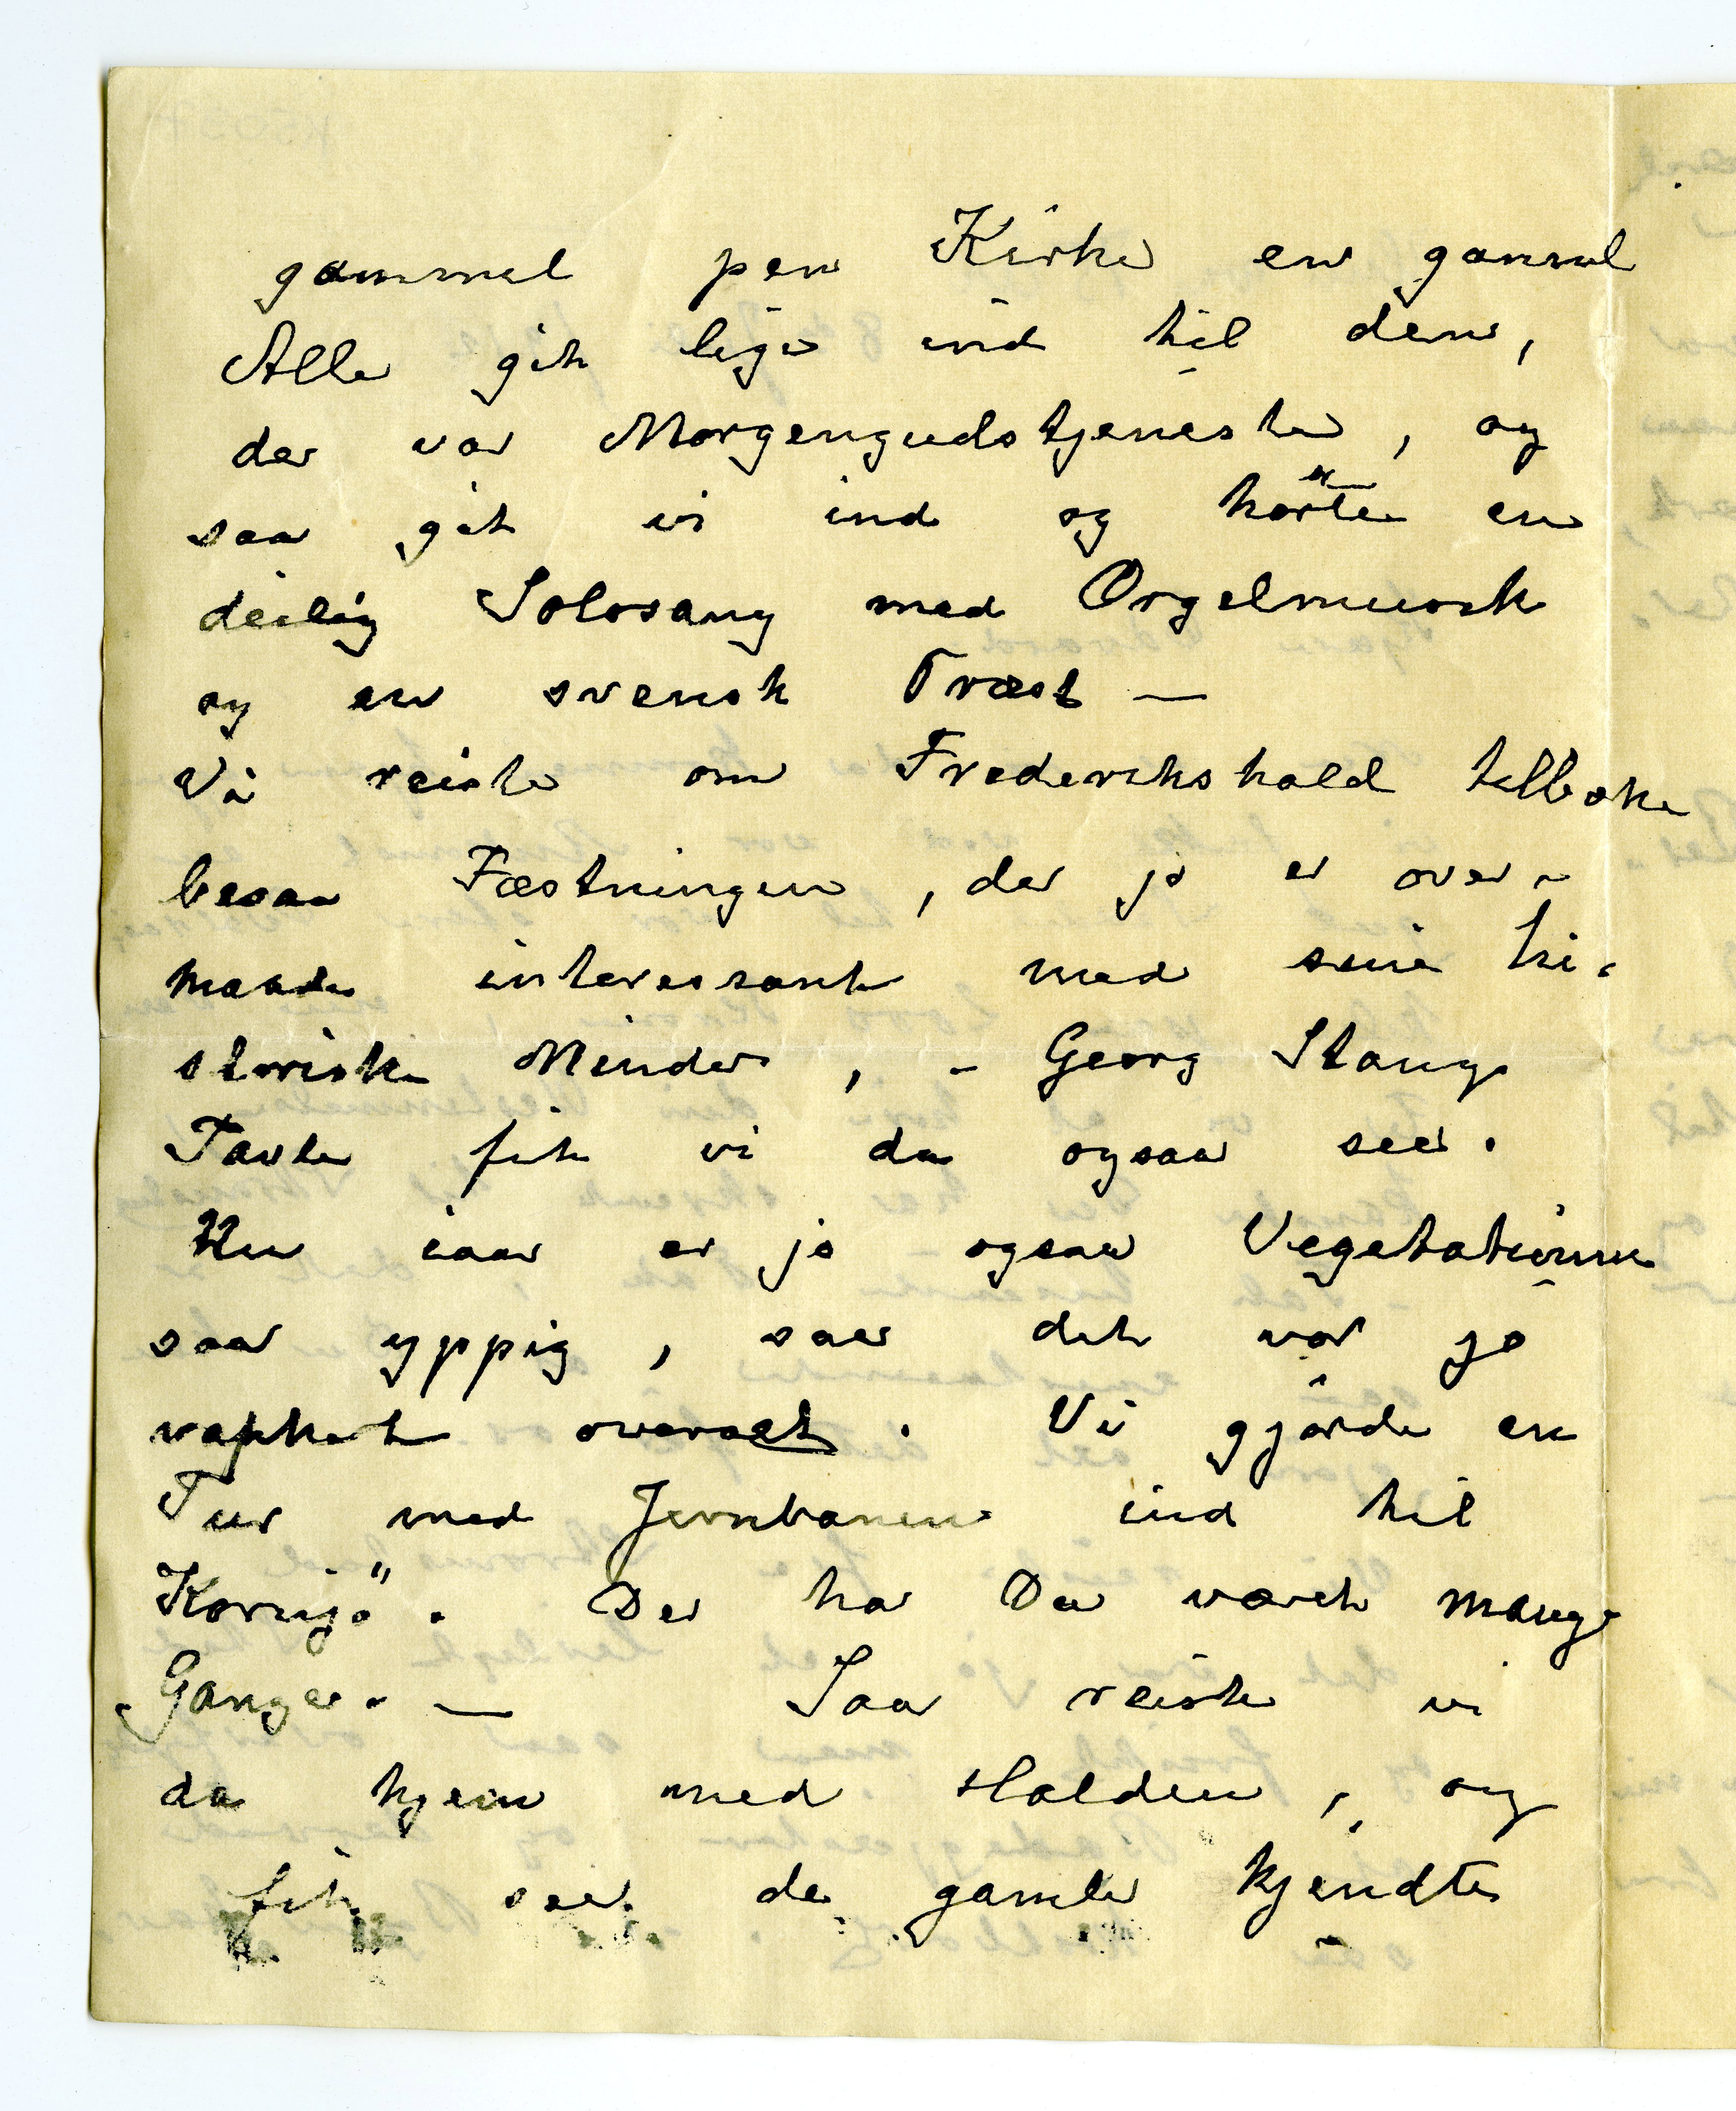 gammel pen Kirke en gammel
Alle gik lige ind til den,
der var Morgengudstjeneste, og
saa gik vi ind og hørte en
deilig Solosang med Orgelmusik
og en svensk Præst —
Vi reiste om Frederikshald tilbake
besaa Fæstningen, der jo er over-
maade interessant med sine hi-
storiske Minder, - Georg Stangs
Tavle fik vi da ogsaa see.
Nu iaar er jo ogsaa Vegetationen
saa yppig, saa det var jo
vakkert overalt. Vi gjorde en
Tur med Jernbanen ind til
Kornsjø. Der har Du været mange
Gange. — Saa reiste vi
da hjem med Halden, og
fik see de gamle kjendte